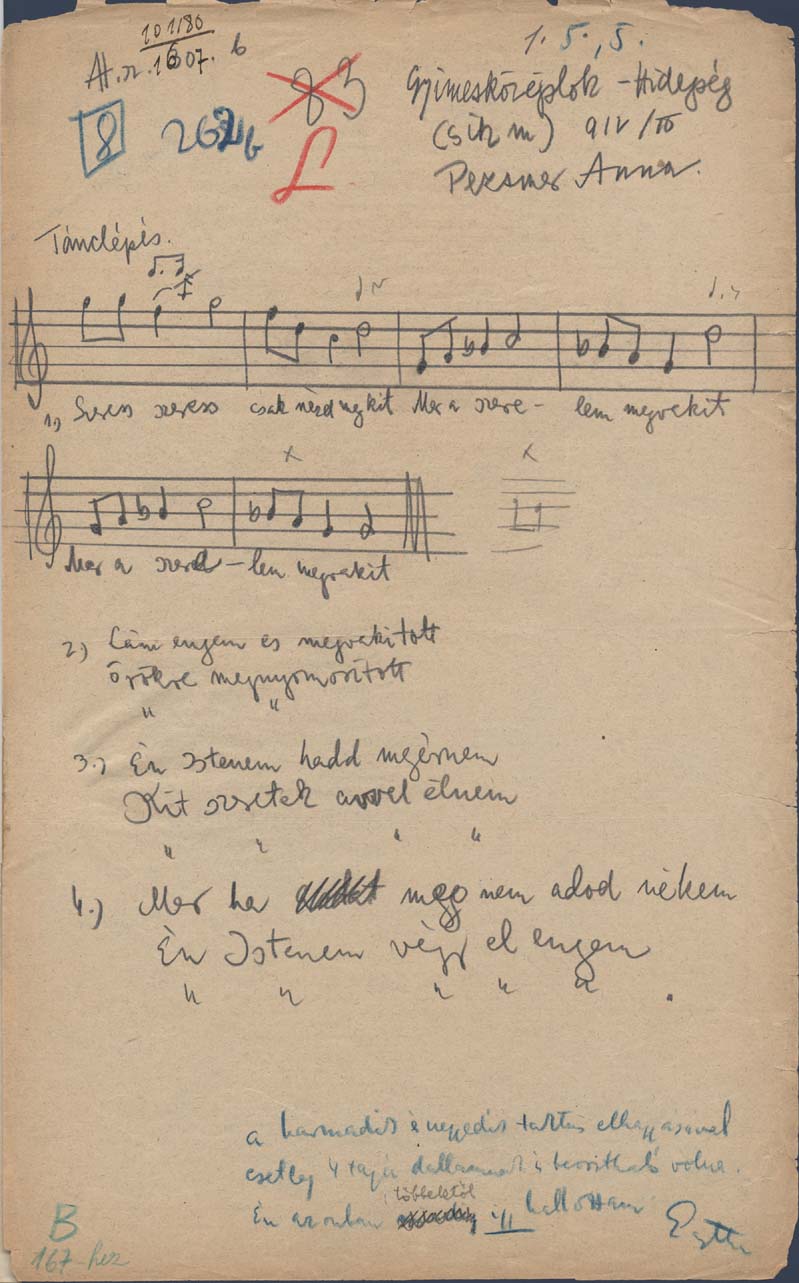 101/80
A.sz. 1607. b
83
1. 5., 5.
8
262
L
Gyimesközéplok - Hidegség
(Csík m) 912/IV
Pezsmer Anna.
Tánclépés.
1.) Szeress szeress csak nézd meg kit Mer a szere - lem megvakit
Mer a szere - lem megvakit
2.) Lám engem es megvakított
örökre megnyomorított
" "
3.) Én Istenem hadd megérnem
Kit szeretek avval élnem
" " " "
4.) Mer ha meg nem adod nékem
Én Istenem végy el engem
" " " " " .
a harmadik és negyedik taktus elhagyásával
esetleg 4 tagú dallamnak is beosztható volna.
többektől
Én azonban így hallottam
B
167-hez